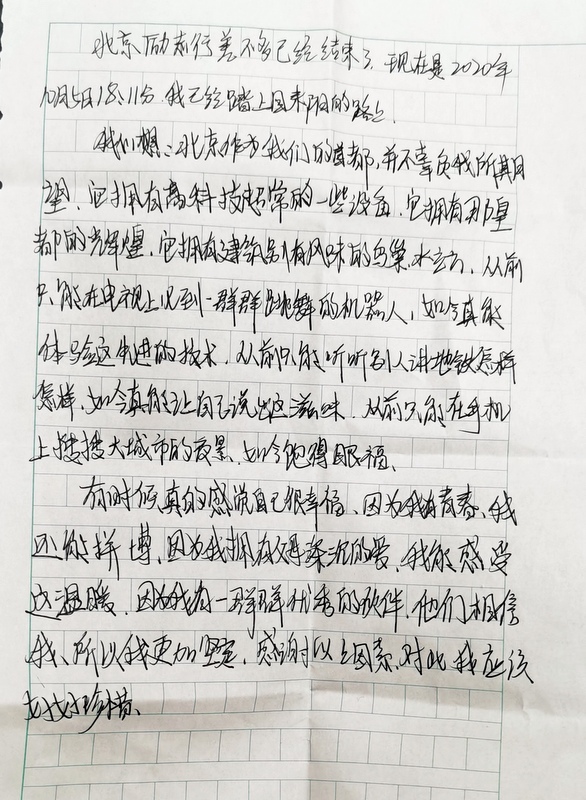 北京励志行差不多已经结束了.现在是2020年
10月5日18:11分.我已经踏上回来阳的路上.
我们想:北京作为我们的首都,并不辜负我所期
望.它拥有高科技超常的一些设备.它拥有那皇
都的光辉煌.它拥有建筑别有风味的鸟巢.水立方.从前
只能在电视上见到一群群跳舞的机器人,如今真能
体验这先进的技术.从前只能听听别人讲地铁怎样
怎样.如今真能让自己说出这滋味.从前只能在手机
上搜搜大城市的夜景.如今饱得眼福.
有时候真的感觉自己很幸福、因为我有青春、我
还能拼博.因为我拥有父母深沉的爱.我能感受
这温暖.因为我有一群群优秀的伙伴.他们相信
我、所以我更加坚定.感谢以上因素.对此我应该
好好珍惜、